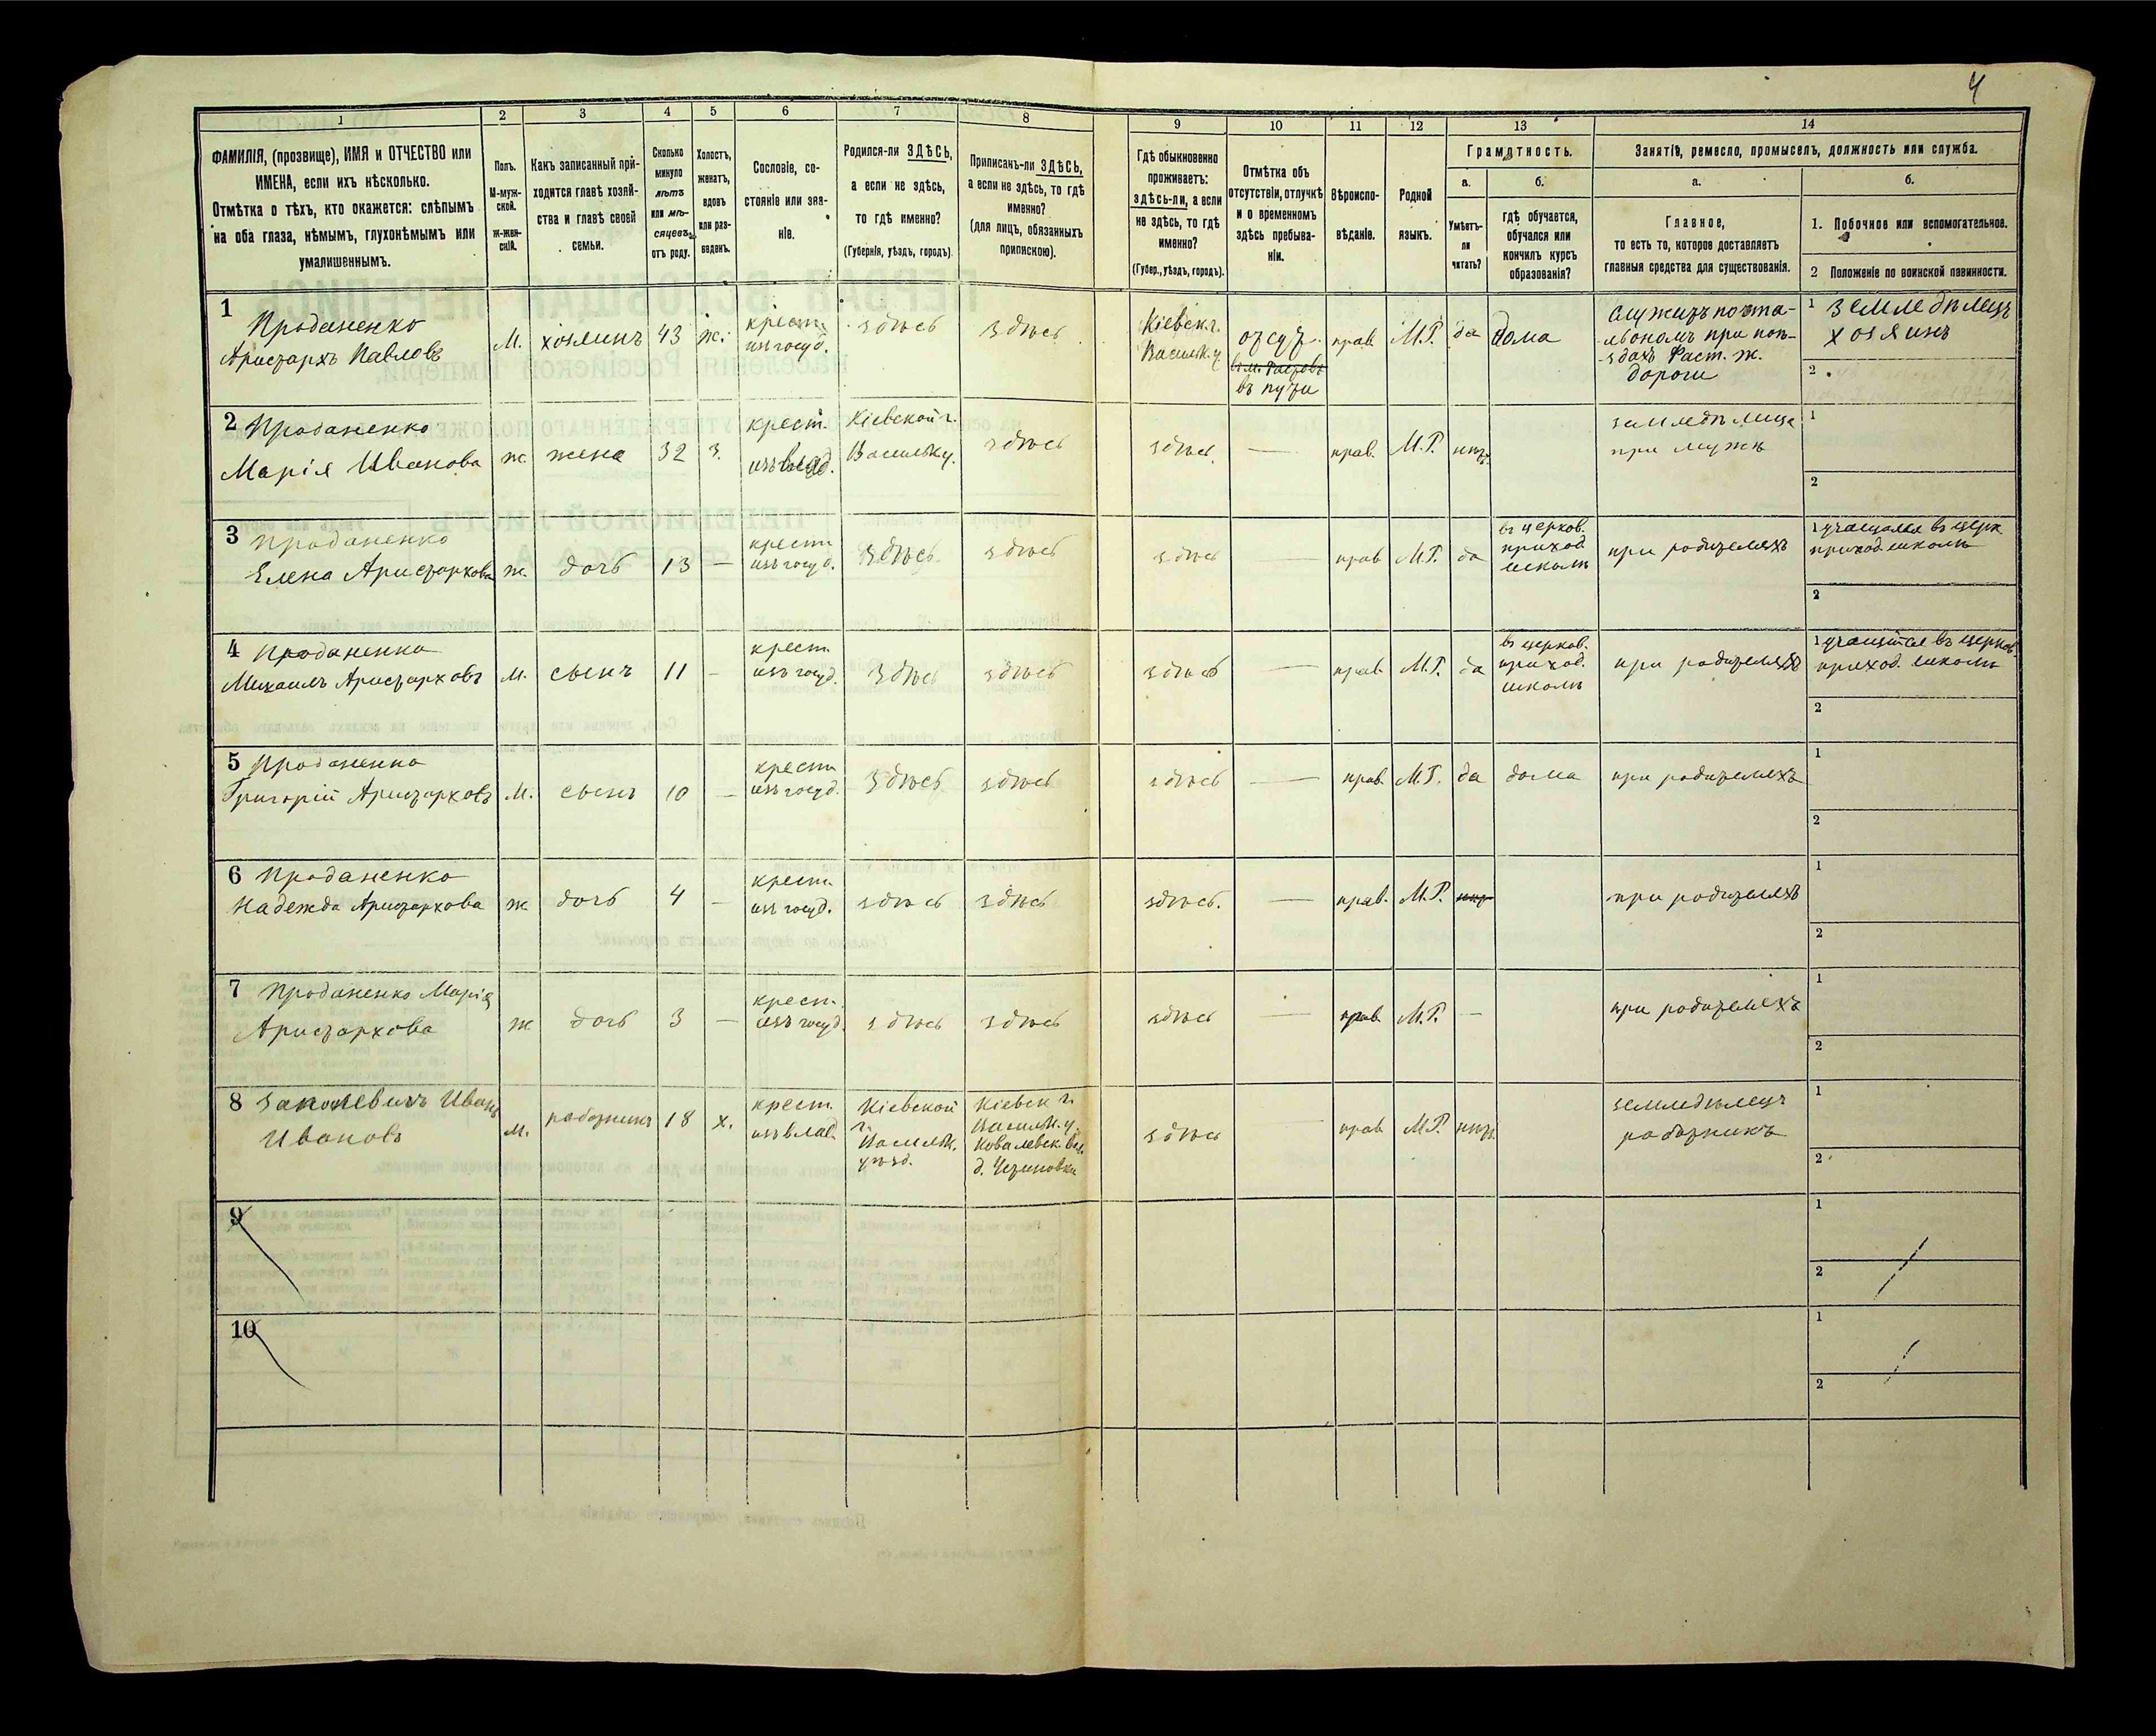 4
1
2
3
4
5
6
7
8
9
10
11
12
13
14
ФАМИЛІЯ, (прозвище), ИМЯ и ОТЧЕСТВО или
ИМЕНА, если ихъ нѣсколько.
Отмѣтка о тѣхъ, кто окажется: слѣпымъ
на оба глаза, нѣмымъ, глухонѣмымъ или
умалишеннымъ.
Полъ.
М-муж-
ской.
ж-жен-
скій.
Какъ записанный при-
ходится главѣ хозяй-
ства и главѣ своей
семьи.
Сколько
минуло
лѣтъ
или мѣ-
сяцевъ
отъ роду.
Холостъ,
женатъ,
вдовъ
или раз-
веденъ.
Сословіе, со-
стояніе или зва-
ніе.
Родился-ли ЗДѢСЬ,
а если не здѣсь,
то гдѣ именно?
(Губернія, уѣздъ, городъ)
Приписанъ-ли ЗДѢСЬ,
а если не здѣсь, то гдѣ
именно?
(для лицъ, обязанныхъ
припискою).
Гдѣ обыкновенно
проживаетъ:
здѣсь-ли, а если
не здѣсь, то гдѣ
именно?
(Губер., уѣздъ, городъ).
Отмѣтка объ
отсутствіи, отлучкѣ
и о временномъ
здѣсь пребыва-
ніи.
Вѣроиспо-
вѣданіе.
Родной
языкъ.
Грамотность.
а.
б.
Умѣетъ-
ли
читать?
гдѣ обучается,
обучался или
кончилъ курсъ
образованія?
Занятіе, ремесло, промыселъ, должность или служба.
а.
б.
Главное,
то есть то, которое доставляетъ
главныя средства для существованія.
1. Побочное или вспомогательное.
2 Положеніе по воинской повинности.
1
Проданенко
Аристархъ Павловъ
М.
хозяинъ
43
ж.
крест.
из госуд.
здѣсь
здѣсь
Кіевск. г.
Васильк. у.
отсут.
въ м. Фастовѣ
въ пути
прав.
М.Р.
да
дома
служитъ почта-
льономъ при поѣ-
здахъ Фаст. ж.
дороги
1 земледѣлецъ
хозяинъ
2
2 Проданенко
Марія Иванова
ж.
жена
32
з.
крест.
изъ влад.
Кіевской г.
Васильк. у.
здѣсь
здѣсь.
—
прав.
М.Р.
нѣтъ
земледѣлица
при мужѣ
1
2
3 Проданенко
Елена Аристархова
ж.
дочь
13
—
крест.
изъ госуд.
здѣсь
здѣсь
здѣсь
—
прав.
М.Р.
да
въ церков.
приход.
школѣ
при родителяхъ
1 учащаяся въ церк.
приход. школѣ
2
4 Проданенко
Михаилъ Аристарховъ
м.
сынъ
11
—
крест.
изъ госуд.
здѣсь
здѣсь
здѣсь
—
прав.
М.Р.
да
въ церков.
приход.
школѣ
при родителяхъ
1 учащійся въ церков.
приход. школѣ
2
5 Проданенко
Григорій Аристарховъ
М.
сынъ
10
—
крест.
изъ госуд.
здѣсь
здѣсь
здѣсь
—
прав.
М.Р.
да
дома
при родителяхъ
1
2
6 Проданенко
Надежда Аристархова
ж
дочь
4
—
крест.
изъ госуд.
здѣсь
здѣсь
здѣсь.
—
прав.
М.Р.
нѣт
при родителяхъ
1
2
7 Проданенко Марія
Аристархова
ж
дочь
3
—
крест.
изъ госуд.
здѣсь
здѣсь
здѣсь
—
прав.
М.Р.
—
при родителяхъ
1
2
8 Иванъ
Ивановъ
м.
работникъ
18
х.
крест.
изъ влад.
Кіевской
г.
Васильк.
уѣзд.
Кіевск. г.
Васильк. у.
Ковалевск. вол.
д. Устиновки
здѣсь
прав.
М.Р.
нѣтъ
земледѣлецъ
работникъ
1
2
9
1
2
10
1
2